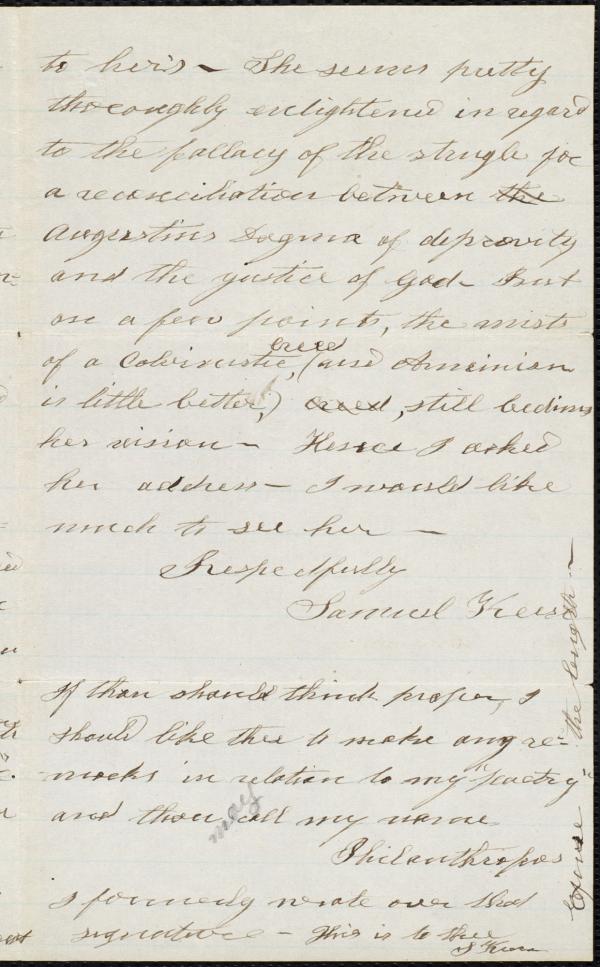 to her's – She seems pretty
thoroughly enlightened in regard
to the fallacy of the strugle for
a reconciliation between the
Augustins Dogma of depravity
and the justice of God – But
on a few points, the mists
creed
of a Calvinistic, (and Arminian
is little better,) creed, still bedims
her vision – Hence I asked
her address – I would like
much to see her –
Respectfully
Samuel
If thou should think proper, I
should like thee to make any re-
marks in relation to my "poetry"
and thou may call my name
Philanthropos
I formerly wrote over that
signature – This is to thee
S
Excuse the length –